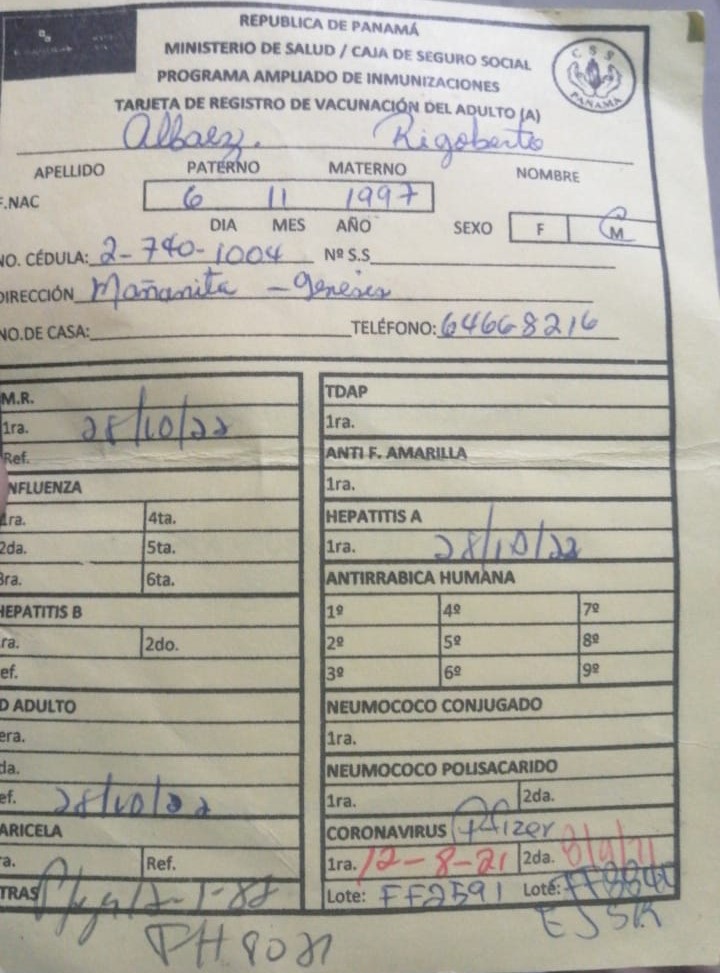 REPUBLICA DE PANAMÁ
MINISTERIO DE SALUD / CAJA DE SEGURO SOCIAL
PROGRAMA AMPLIADO DE INMUNIZACIONES
TARJETA DE REGISTRO DE VACUNACIÓN DEL ADULTO (A)
C S S
PANAMA
Albaez. Rigoberto
APELLIDO PATERNO MATERNO NOMBRE
F.NAC 6 11 1997
DIA MES AÑO SEXO F M
NO. CÉDULA: 2-740-1004 Nº S.S
DIRECCIÓN Mañanita - Genesis
NO.DE CASA: TELÉFONO: 64668216
M.R.
1ra. 28/10/22
Ref.
NFLUENZA
1ra. 4ta.
2da. 5ta.
3ra. 6ta.
HEPATITIS B
ra. 2do.
ef.
D ADULTO
era.
da.
ef. 28/10/22
ARICELA
a. Ref.
TRAS
TDAP
1ra.
ANTI F. AMARILLA
1ra.
HEPATITIS A
1ra. 28/10/22
ANTIRRABICA HUMANA
1º 4º 7º
2º 5º 8º
3º 6º 9º
NEUMOCOCO CONJUGADO
1ra.
NEUMOCOCO POLISACARIDO
1ra. 2da.
CORONAVIRUS Pfizer
1ra. 12-8-21 2da. 8/9/21
Lote: FF2591 Lote: